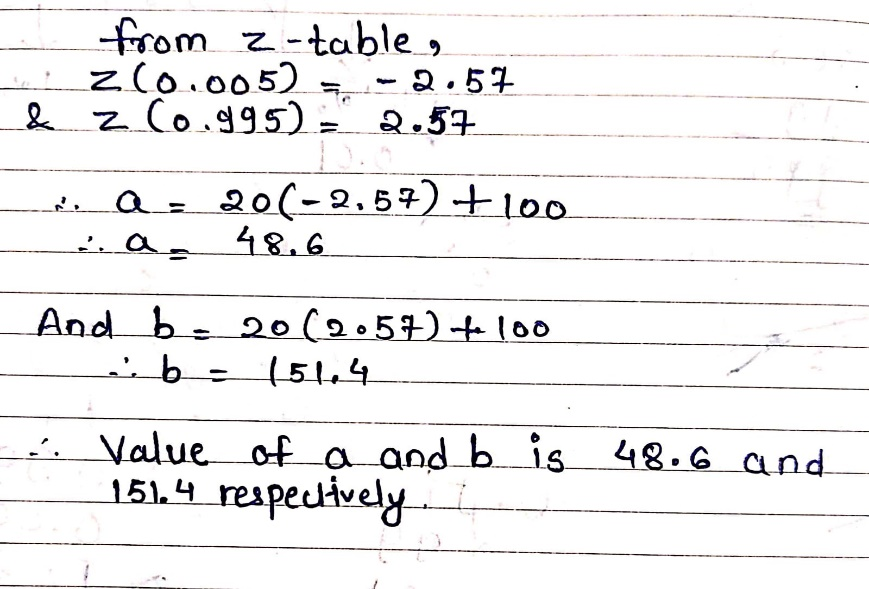 from z-table,
z(0.005) = -2.57
& z(0.995) = 2.57
∴ a = 20(-2.57)+100
∴ a = 48.6
And b = 20(2.57)+100
∴ b = 151.4
∴ Value of a and b is 48.6 and
151.4 respectively.